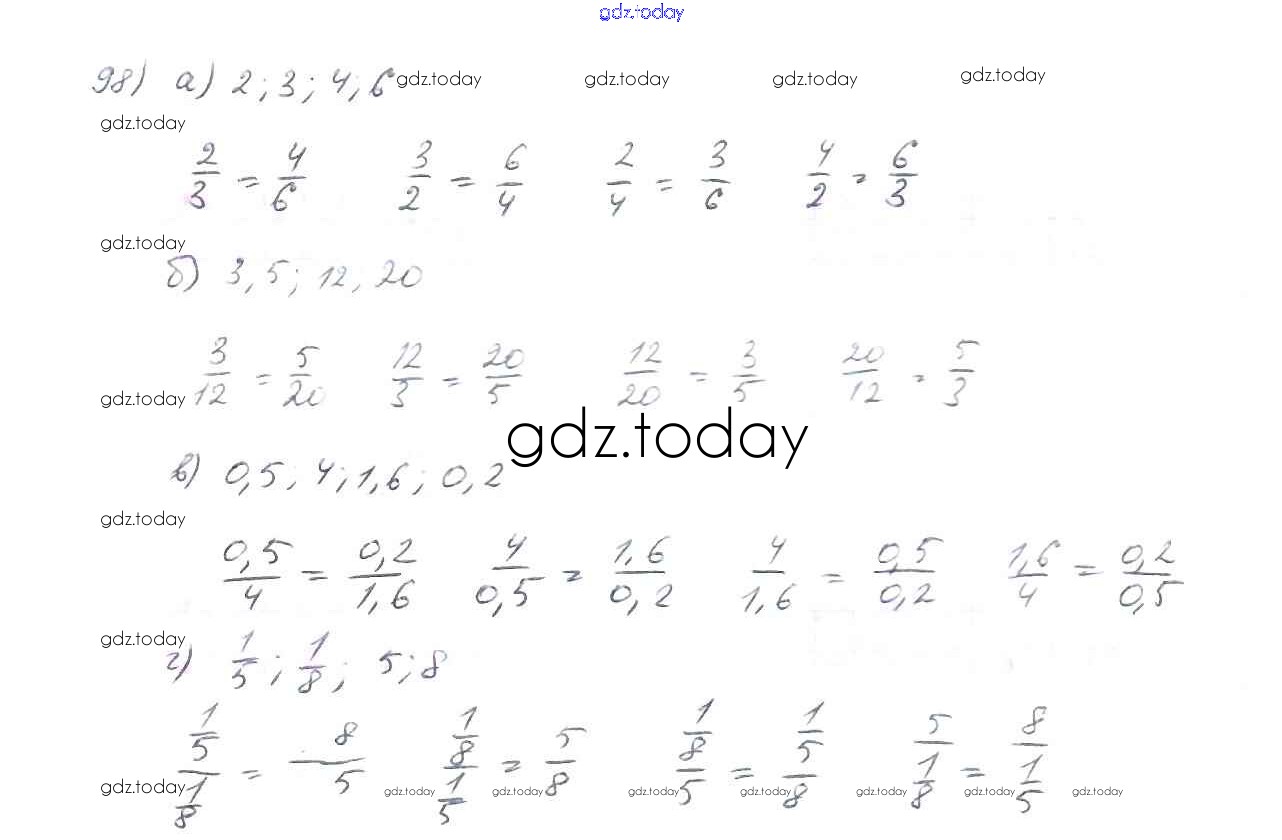 gdz.today
98) а) 2; 3; 4; 6 gdz.today gdz.today gdz.today gdz.today
gdz.today
2/3 = 4/6 3/2 = 6/4 2/4 = 3/6 4/2 = 6/3
gdz.today
б) 3, 5; 12, 20
3/12 = 5/20 12/3 = 20/5 12/20 = 3/5 20/12 = 5/3
gdz.today
gdz.today
в) 0,5; 4; 1,6; 0,2
gdz.today
0,5/4 = 0,2/1,6 4/0,5 = 1,6/0,2 4/1,6 = 0,5/0,2 1,6/4 = 0,2/0,5
gdz.today
г) 1/5; 1/8; 5; 8
(1/5)/(1/8) = 8/5 (1/8)/(1/5) = 5/8 (1/8)/5 = (1/5)/8 5/(1/8) = 8/(1/5)
gdz.today gdz.today gdz.today gdz.today gdz.today gdz.today gdz.today gdz.today